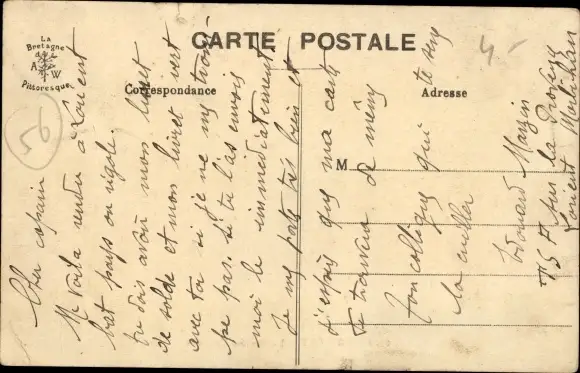 La
Bretagne
A W
Pittoresque
CARTE POSTALE
Correspondance
Adresse
M
56
4-
Cher copain
Me Voila rendu a Lorient
bat pays on rigole.
tu dois avoir mon livret
de solde et mon livret vert
avec toi si je ne my trouve
pe pas. si tu l'as envois
moi le immediatement.
Je my porte tres bien et
j'espere que ma carte
te trouvera de même
Ton collegue qui te serre
la cuiller
Edouard
sur la
Lorient Morbihan